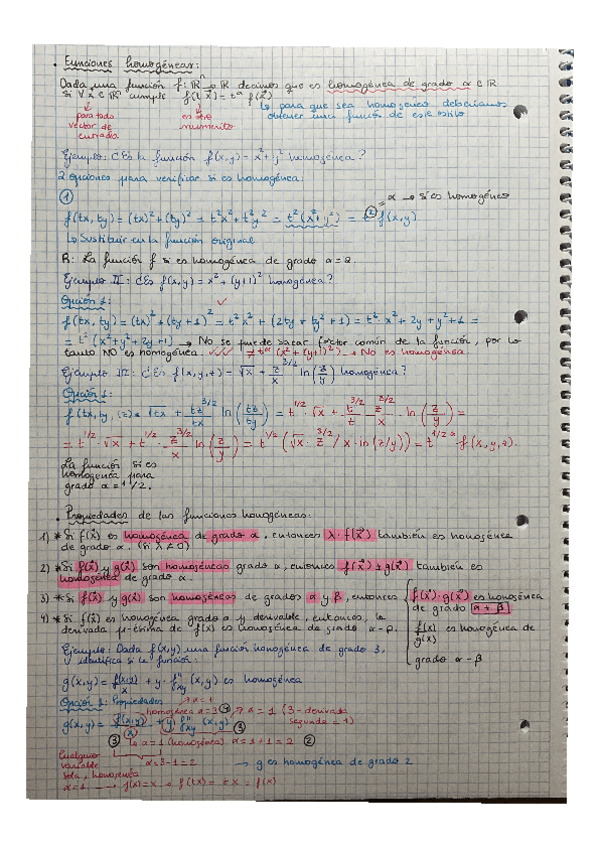 . Funciones homogéneas:
Dada una función f: ℝⁿ → ℝ decimos que es homogénea de grado α ∈ ℝ
si ∀ x ∈ ℝⁿ cumple f(t x⃗) = t^α f(x⃗)
↳ para que sea homogénea deberíamos
para todo
vector de
entrada
obtener una función de este estilo
Ejemplo: ¿Es la función f(x,y) = x² + y² homogénea?
2 opciones para verificar si es homogénea:
①
α → Sí es homogénea
f(tx, ty) = (tx)² + (ty)² = t²x² + t²y² = t²(x² + y²) = t² f(x,y)
↳ Sustituir en la función original
R: La función f si es homogénea de grado α = 2.
Ejemplo II: ¿Es f(x,y) = x² + (y+1)² homogénea?
Opción 1:
f(tx, ty) = (tx)² + (ty+1)² = t²x² + (2ty + ty² + 1) = t² · x² + 2y + y² + 1 =
= t² (x² + y² + 2y + 1) → No se puede sacar factor común de la función, por lo
tanto NO es homogénea. ✓✓✓ ≠ t^α (x² + (y+1)²) → No es homogénea
Ejemplo III: ¿Es f(x,y,z) = √x + z^3/2 / x ln(z/y) homogénea?
Opción 1:
f(tx, ty, tz) = √tx + tz^3/2 / tx ln(tz/ty) = t^1/2 · √x + t^3/2 / t · z^3/2 / x · ln(z/y) =
= t^1/2 · √x + t^1/2 · z^3/2 / x ln(z/y) = t^1/2 (√x · z^3/2 / x · ln(z/y)) = t^1/2 · f(x, y, z).
La función sí es
homogénea para
grado α = 1/2.
. Propiedades de las funciones homogéneas:
1) * Si f(x⃗) es homogénea de grado α, entonces λ · f(x⃗) también es homogénea
de grado α. (si λ ≠ 0)
2) * Si f(x⃗) y g(x⃗) son homogéneas grado α, entonces f(x⃗) ± g(x⃗) también es
homogénea de grado α.
3) * Si f(x⃗) y g(x⃗) son homogéneas de grados α y β, entonces f(x⃗) · g(x⃗) es homogénea
de grado α + β
f(x⃗)/g(x⃗) es homogénea de
grado α - β
4) * Si f(x⃗) es homogénea grado α y derivable, entonces, la
derivada p-ésima de f(x) es homogénea de grado α - p.
Ejemplo: Dada f(x,y) una función homogénea de grado 3,
identifica si la función:
g(x,y) = f(x,y)/x + y · f''xy (x,y) es homogénea
Opción 1: Propiedades
→ α = 1
homogénea α = 3
→ α = 1 (3 - derivada
segunda = 1)
g(x,y) = f(x,y)/x + y · f''xy (x,y)
③ ↳ α = 1 (homogénea) α = 1 + 1 = 2 ②
Cualquier
variable
sola, homogénea
α = 3 - 1 = 2
→ g es homogénea de grado 2
α = 1 → f(x) = x → f(tx) = tx = f(x)